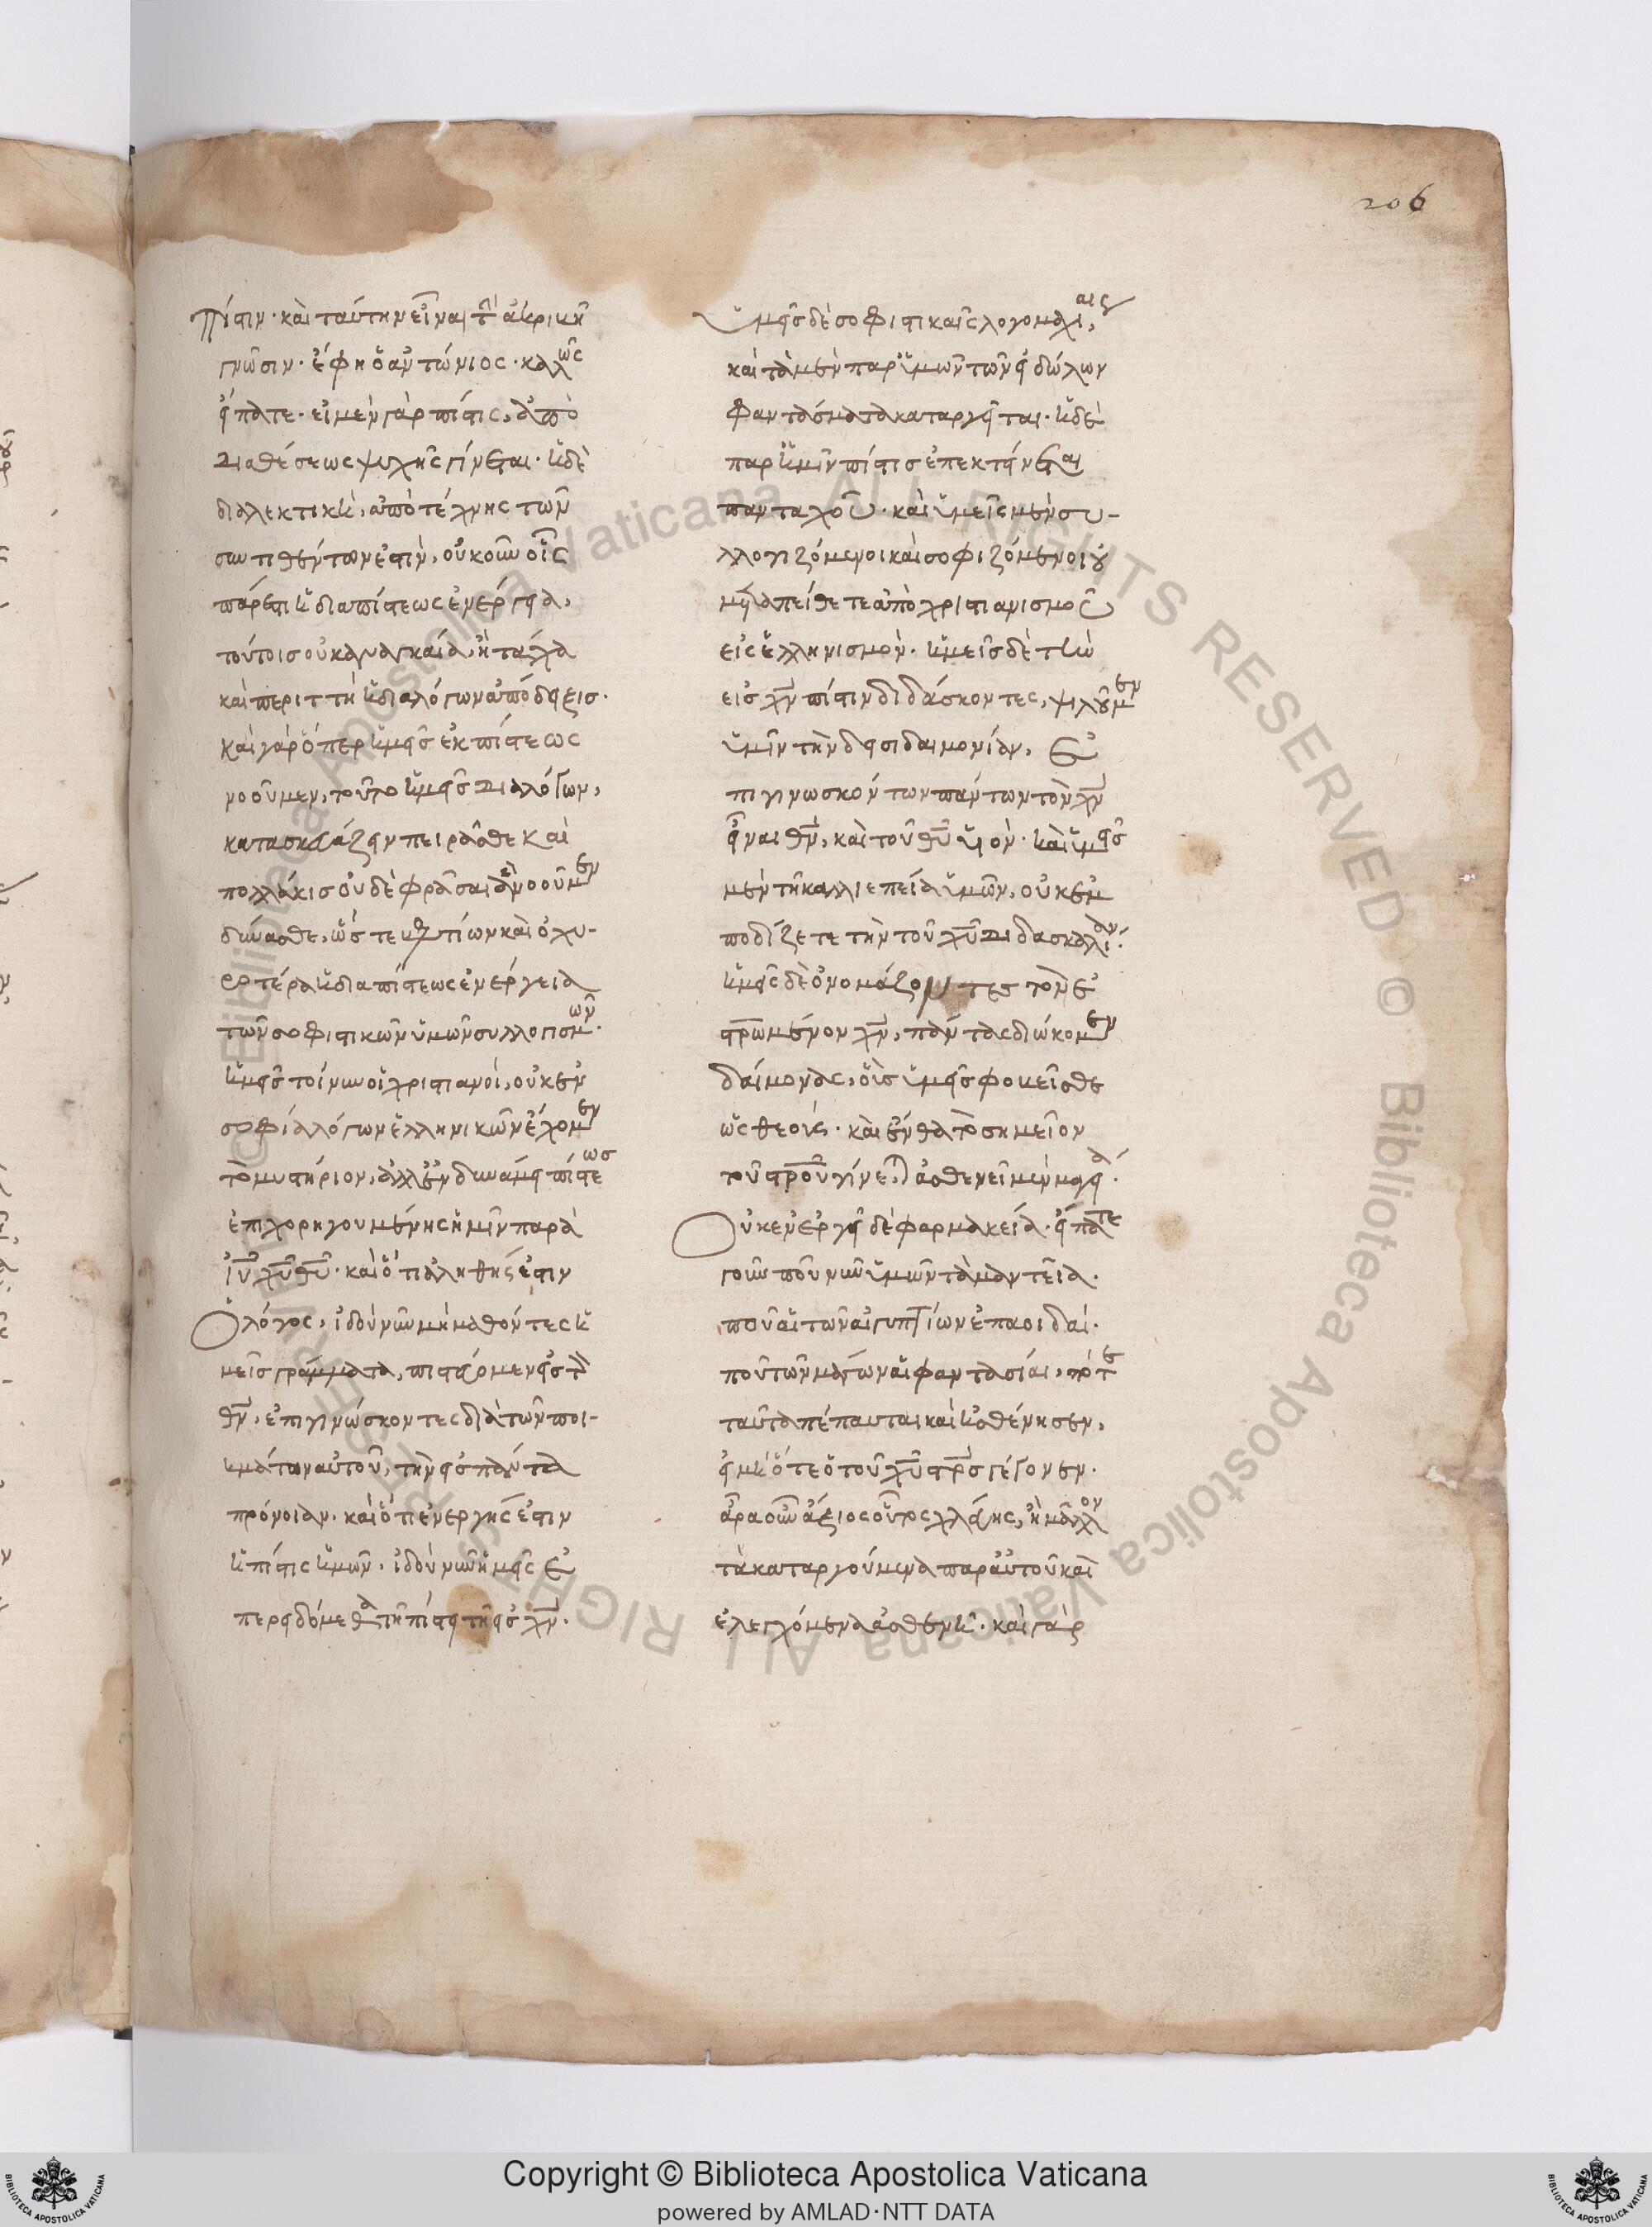 206
πίστιν· καὶ ταύτην εἶναι τὴν ἀκριβῆ
γνῶσιν· ἔφη ὁ ἀντώνιος· καλῶς
εἴπατε· ἡ μὲν γὰρ πίστις, ἀπὸ
διαθέσεως ψυχῆς γίνεται· ἡ δὲ
διαλεκτικὴ, ἀπὸ τέχνης τῶν
συντιθέντων ἐστὶν, οὐκοῦν οἷς
πάρεστι ἡ διὰ πίστεως ἐνέργεια,
τούτοις οὐκ ἀναγκαία, ἢ τάχα
καὶ περιττὴ ἡ διὰ λόγων ἀπόδειξις·
καὶ γὰρ ὅπερ ἡμεῖς ἐκ πίστεως
νοοῦμεν, τοῦτο ὑμεῖς διὰ λόγων,
κατασκευάζειν πειρᾶσθε καὶ
πολλάκις οὐδὲ φράσαι ἃ νοοῦμεν
δύνασθε, ὥστε βελτίων καὶ ὀχυ-
ρωτέρα ἡ διὰ πίστεως ἐνέργεια
τῶν σοφιστικῶν ὑμῶν συλλογισμῶν·
ἡμεῖς τοίνυν οἱ χριστιανοὶ, οὐκ ἐν
σοφίᾳ λόγων ἑλληνικῶν ἔχομεν
τὸ μυστήριον, ἀλλ' ἐν δυνάμει πίστεως
ἐπιχορηγουμένης ἡμῖν παρὰ
ἰυ χυ θυ· καὶ ὅτι ἀληθής ἐστιν
ὁ λόγος, ἰδοὺ νῦν μὴ μαθόντες ἡ
μεῖς γράμματα, πιστεύομεν εἰς τὸν
θν, ἐπιγινώσκοντες διὰ τῶν ποι-
ημάτων αὐτοῦ, τὴν εἰς πάντα
πρόνοιαν· καὶ ὅτι ἐνεργής ἐστιν
ἡ πίστις ἡμῶν· ἰδοὺ νῦν ἡμεῖς ἐ
περειδόμεθα τῇ πίστει τῇ εἰς χν·
ὑμεῖς δὲ σοφιστικαῖς λογομαχίαις,
καὶ τὰ μὲν παρ' ὑμῶν τῶν εἰδώλων
φαντάσματα καταργεῖται· ἡ δὲ
παρ' ἡμῖν πίστις ἐπεκτείνεται
πανταχοῦ· καὶ ὑμεῖς μὲν συ-
λλογιζόμενοι καὶ σοφιζόμενοι οὐ
μεταπείθετε ἀπὸ χριστιανισμοῦ
εἰς ἑλληνισμὸν· ἡμεῖς δὲ τὴν
εἰς χν πίστιν διδάσκοντες, ψιλοῦμεν
ὑμῖν τὴν δεισιδαιμονίαν, ἐ
πιγινωσκόντων πάντων τὸν χν
εἶναι θν, καὶ τοῦ θυ υἱὸν· καὶ ὑμεῖς
μὲν τῇ καλλιεπείᾳ ὑμῶν, οὐκ ἐμ
ποδίζετε τὴν τοῦ χυ διδασκαλίαν·
ἡμεῖς δὲ ὀνομάζοντες τὸν ἐ
στρωμένον χν, πάντας διώκομεν
δαίμονας, οὓς ὑμεῖς φοβεῖσθε
ὡς θεούς· καὶ ἔνθα τὸ σημεῖον
τοῦ στροῦ γίνεται ἀσθενεῖ μὲν μαγεία·
Οὐκ ἐνεργεῖ δὲ φαρμακεία· εἴπατε
γοῦν ποῦ νῦν ὑμῶν τὰ μαντεῖα·
ποῦ αἱ τῶν αἰγυπτίων ἐπαοιδαί·
ποῦ τῶν μάγων αἱ φαντασίαι, πότε
ταῦτα πέπαυται καὶ ἠσθένησεν,
εἰ μὴ ὅτε ὁ τοῦ χυ στρς γέγονεν·
ἆρα οὖν ἄξιος οὗτος χλεύης, ἢ μᾶλλον
τὰ καταργούμενα παρ' αὐτοῦ καὶ
ἐλεγχόμενα ἀσθενῆ· καὶ γὰρ
Copyright © Biblioteca Apostolica Vaticana
powered by AMLAD·NTT DATA